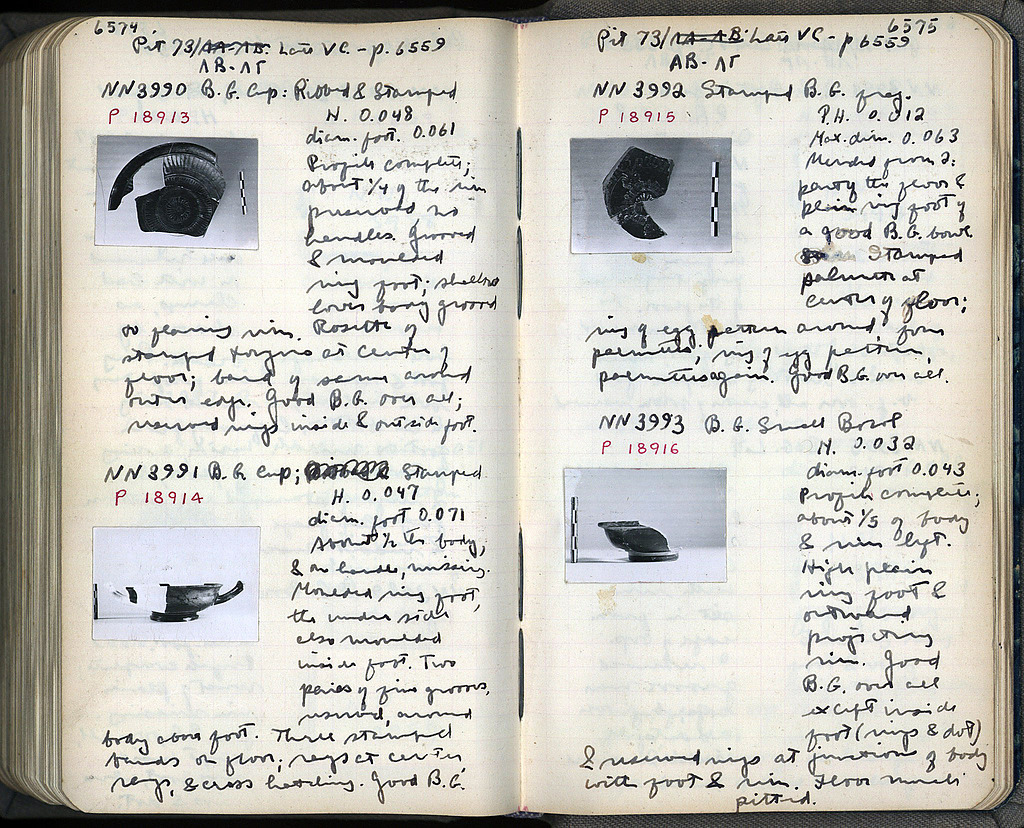 6574
Pit 73/ΛΑ-ΛΒ: Late VC - p. 6559
ΛΒ-ΛΓ
NN3990 B.G. Cup: Ribbed & Stamped
P 18913
H. 0.048
diam. foot. 0.061
Profile complete;
about 1/4 of the rim
preserved, no
handles. Grooved
& moulded
ring foot; shallow
lower body grooved
to flaring rim. Rosette of
stamped tongues at center of
floor; band of same around
outer edge. Good B.G. over all;
reserved rings inside & outside foot.
NN3991 B.G. Cup; Stamped
P 18914
H. 0.047
diam. foot 0.071
About 1/2 the body,
& one handle, missing.
Moulded ring foot,
the under side
also moulded
inside foot. Two
pairs of fine grooves,
reserved, around
body above foot. Three stamped
bands on floor; rays at center,
rays, & cross hatching. Good B.G.
6575
Pit 73/ΛΑ-ΛΒ: Late VC - p 6559
ΛΒ-ΛΓ
NN3992 Stamped B.G. frag.
P 18915
P.H. 0.012
Max. dim. 0.063
Mended from 2:
part of the floor &
plain ring foot of
a good B.G. bowl.
Stamped
palmette at
center of floor;
ring of egg pattern around, four
palmettes, ring of egg pattern,
palmettes again. Good B.G. over all.
NN3993 B.G. Small Bowl
P 18916
H. 0.032
diam. foot 0.043
Profile complete;
about 1/5 of body
& rim left.
High plain
ring foot &
outward
projecting
rim. Good
B.G. over all
except inside
foot (rings & dot)
& reserved rings at junction of body
with foot & rim. Floor much
pitted.